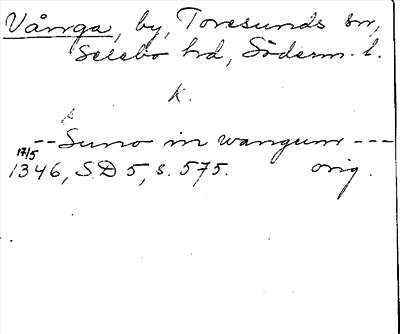 Vånga, by, Toresunds sn,
Selebo hd, Söderm. l.
k.
s
-- Suno in wangum ---
17/5
1346, SD 5, s. 575. orig.